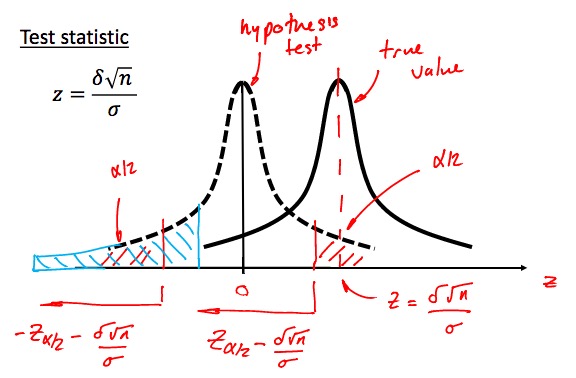 Test statistic
z = δ√n / σ
hypothesis
test
true
value
α/2
α/2
0
z
-Zα/2 - δ√n / σ
Zα/2 - δ√n / σ
Z = δ√n / σ